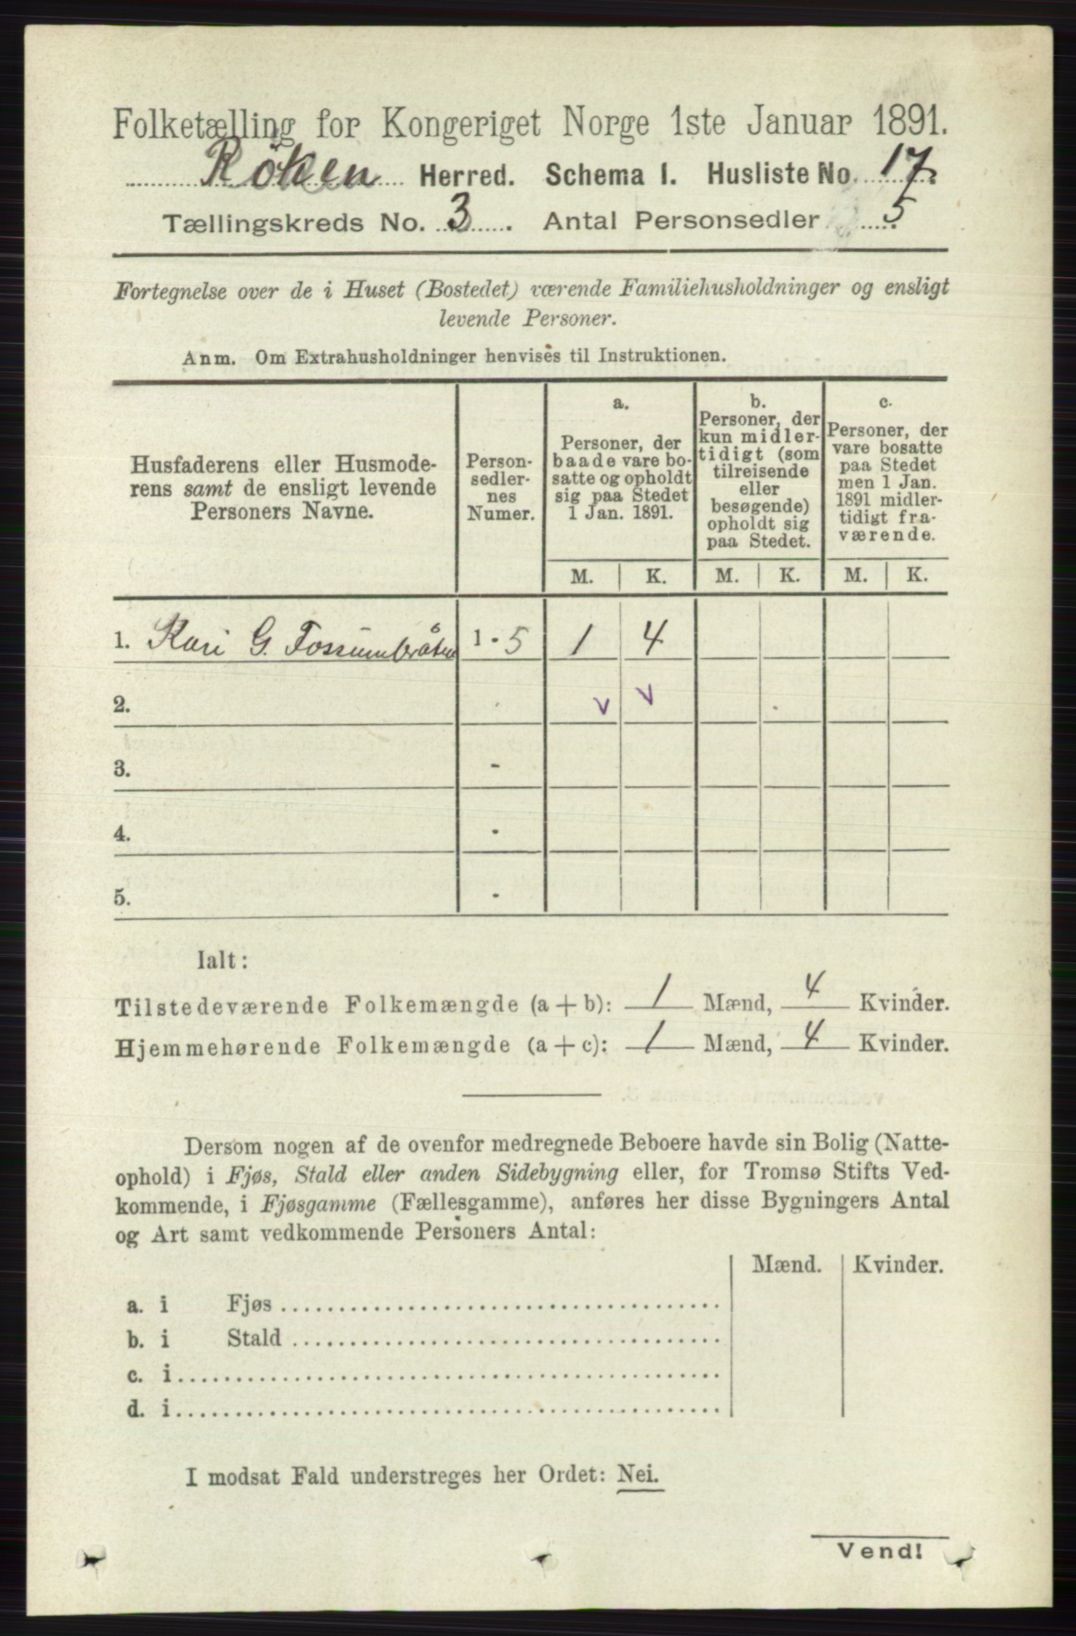 Folketælling for Kongeriget Norge 1ste Januar 1891.
Röken Herred. Schema I. Husliste No. 17.
Tællingskreds No. 3. Antal Personsedler 5
Fortegnelse over de i Huset (Bostedet) værende Familiehusholdninger og ensligt
levende Personer.
Anm. Om Extrahusholdninger henvises til Instruktionen.
Husfaderens eller Husmode-
rens samt de ensligt levende
Personers Navne.
Person-
sedler-
nes
Numer.
a.
Personer, der
baade vare bo-
satte og opholdt
sig paa Stedet
1 Jan. 1891.
b.
Personer, der
kun midler-
tidigt (som
tilreisende
eller
besøgende)
opholdt sig
paa Stedet.
c.
Personer, der
vare bosatte
paa Stedet
men 1 Jan.
1891 midler-
tidigt fra-
værende.
M. K. M. K. M. K.
1. Kari G. Fossumbråten 1 - 5 1 4
2. v v
3. -
4. -
5. -
Ialt:
Tilstedeværende Folkemængde (a + b): 1 Mænd, 4 Kvinder.
Hjemmehørende Folkemængde (a + c): 1 Mænd, 4 Kvinder.
Dersom nogen af de ovenfor medregnede Beboere havde sin Bolig (Natte-
ophold) i Fjøs, Stald eller anden Sidebygning eller, for Tromsø Stifts Ved-
kommende, i Fjøsgamme (Fællesgamme), anføres her disse Bygningers Antal
og Art samt vedkommende Personers Antal:
Mænd. Kvinder.
a. i Fjøs
b. i Stald
c. i
d. i
I modsat Fald understreges her Ordet: Nei.
Vend!